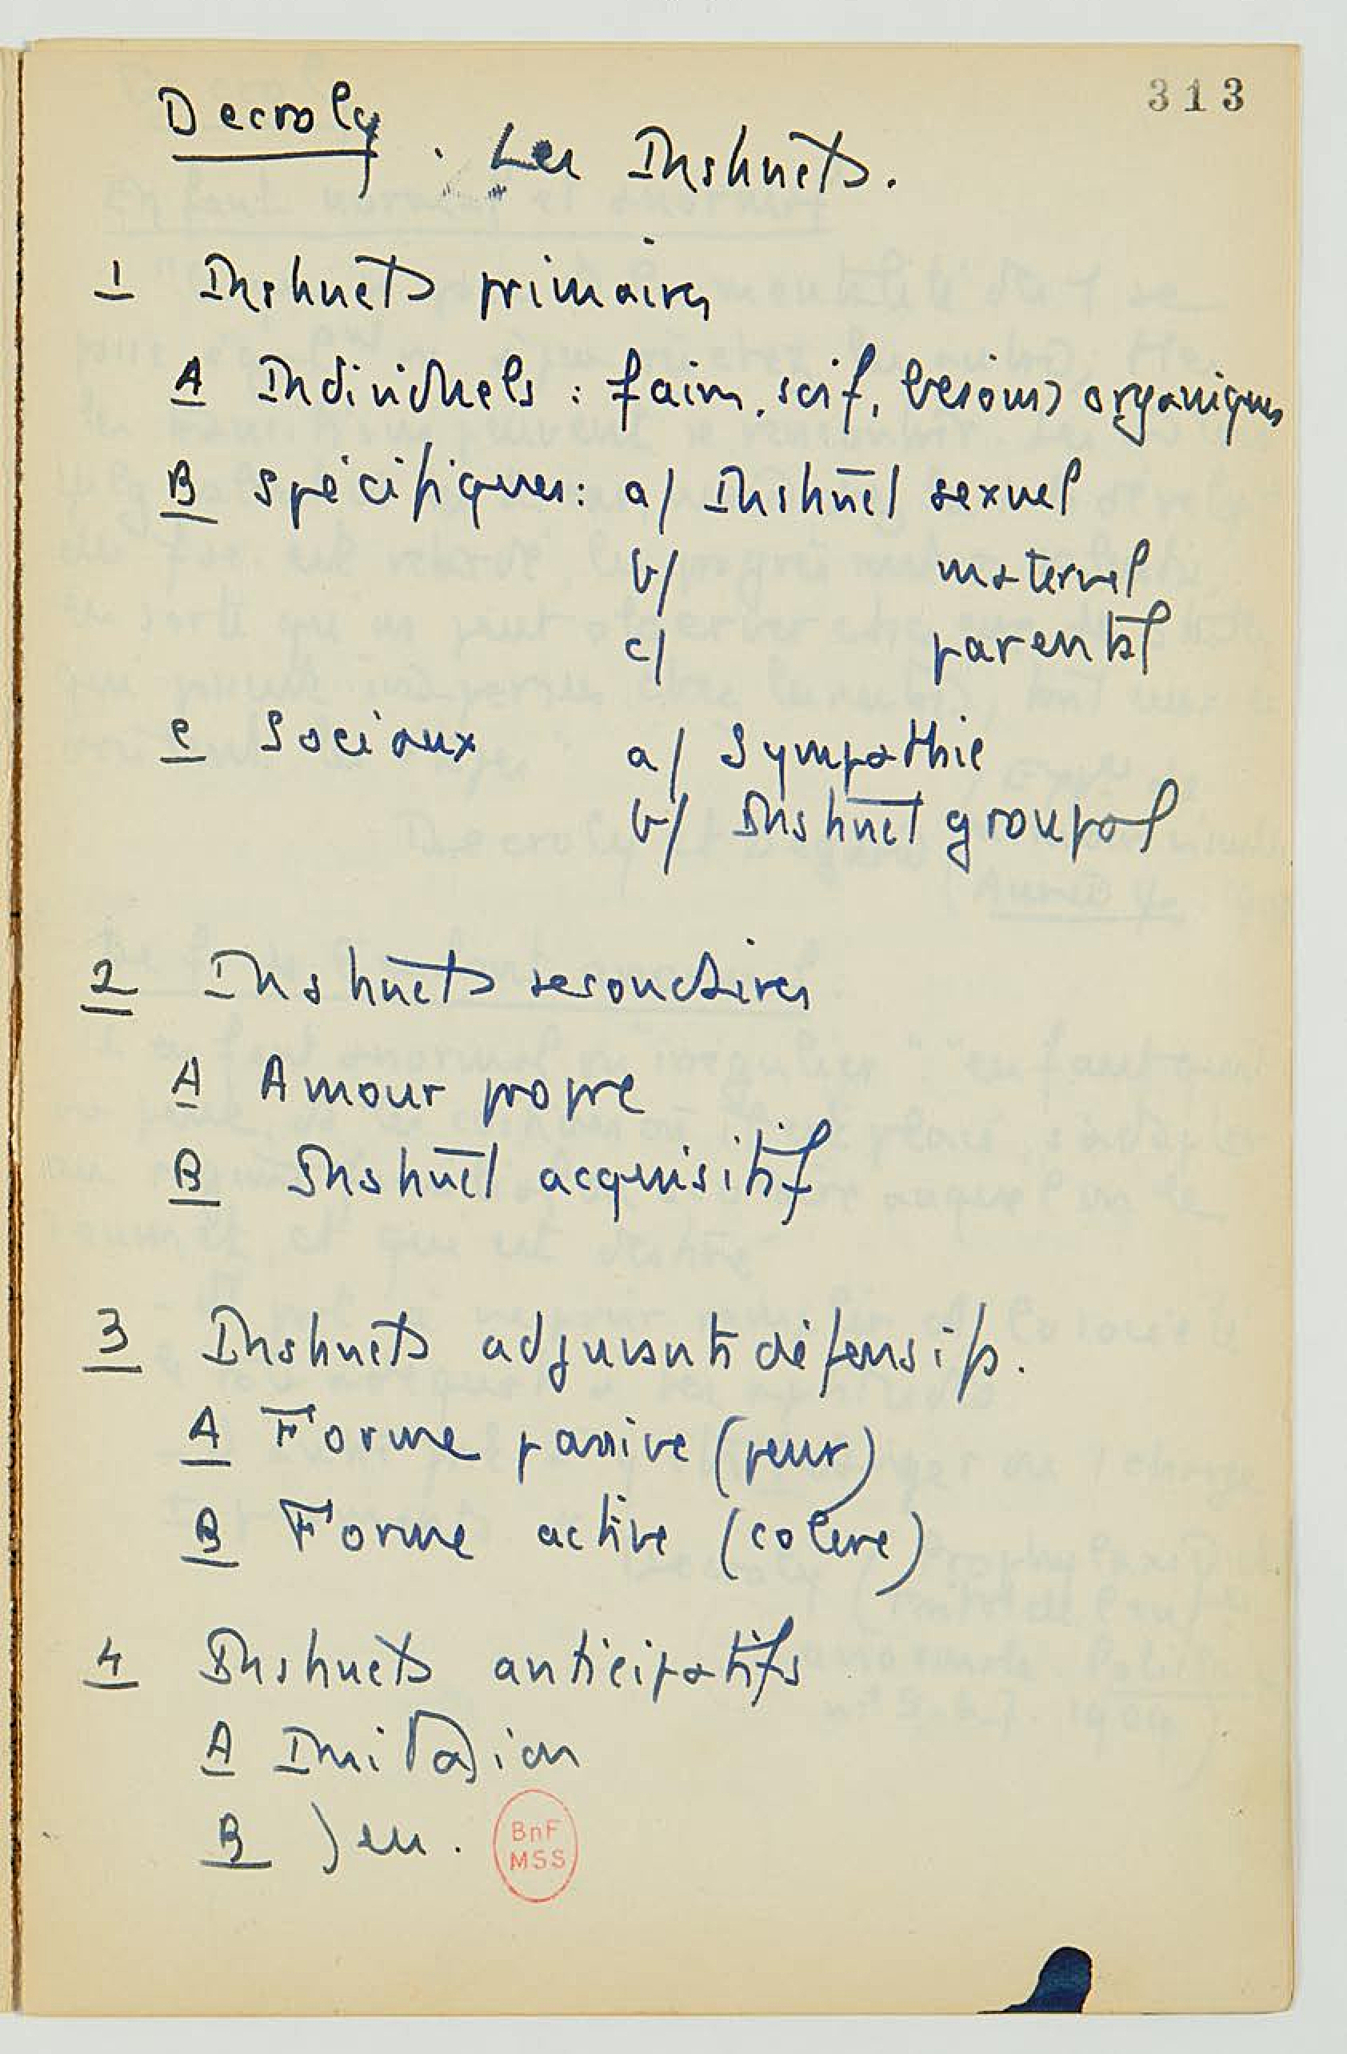 313
Decroly . Les Instincts.
1 Instincts primaires
A Individuels : faim, soif, besoins organiques
B Spécifiques : a/ Instinct sexuel
b/ maternel
c/ parental
C Sociaux a/ Sympathie
b/ Instinct groupal
2 Instincts secondaires
A Amour propre
B Instinct acquisitif
3 Instincts adjuvants défensifs.
A Forme passive (peur)
B Forme active (colère)
4 Instincts anticipatifs
A Imitation
B Jeu.
BnF
MSS